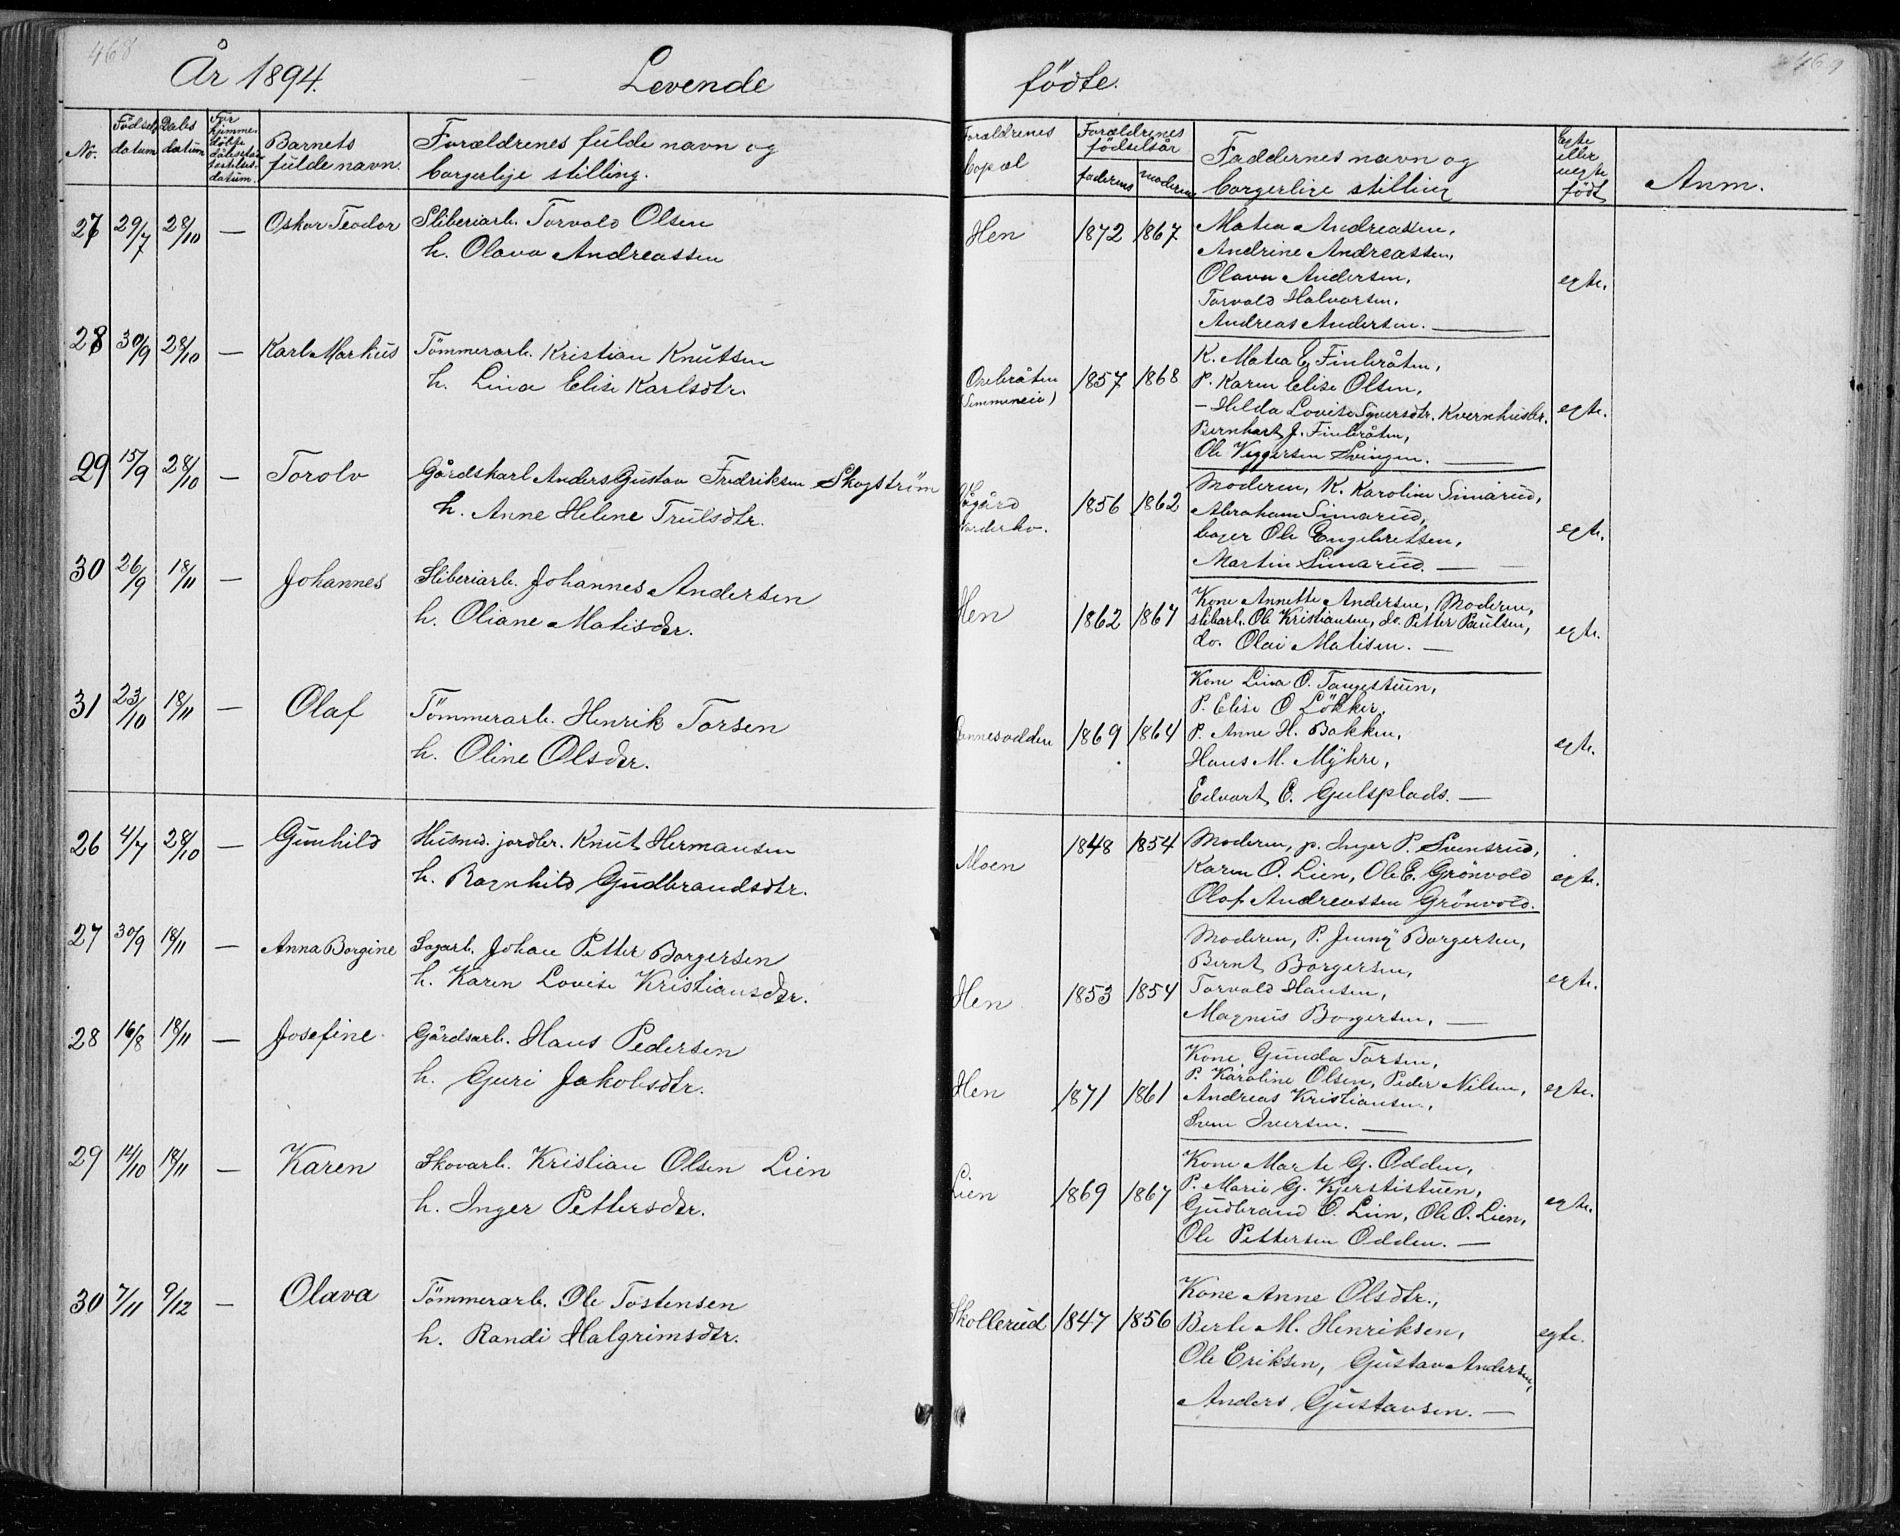 468
År 1894. Levende
No.
Fødsels datum
Dabs datum
Barnets fulde navn.
Forældrenes fulde navn og
borgerlige stilling.
27 29/7 28/10 — Oskar Teodor Sliberiarb. Torvald Olsen
h. Olava Andreassen
28 30/9 28/10 — Karl Markus Tömmerarb. Kristian Knutsen
h. Lina Elise Karlsdtr.
29 15/9 28/10 — Torolv Gårdskarl Anders Gustav Fredriksen Skogström
h. Anne Helene Trulsdtr.
30 26/9 18/11 — Johannes Sliberiarb. Johannes Andersen
h. Oliane Matisdtr.
31 23/10 18/11 — Olaf Tömmerarb. Henrik Torsen
h. Oline Olsdtr.
26 4/7 28/10 — Gunhild Husmd. jordbr. Knut Hermansen
h. Ragnhild Gudbrandsdtr.
27 30/9 18/11 — Anna Borgine Sagarb. Johan Petter Borgersen
h. Karen Lovise Kristiansdtr.
28 16/8 18/11 — Josefine Gårdsarb. Hans Pedersen
h. Guri Jakobsdtr.
29 12/10 18/11 — Karen Skovarb. Kristian Olsen Lien
h. Inger Pettersdtr.
30 7/11 9/12 — Olava Tömmerarb. Ole Tostensen
h. Randi Halgrimsdtr.
469
födte.
Forældrenes bopæl
Forældrenes födselsår
faderens moderens
Faddernes navn og
borgerlige stilling
Egte eller uegte født
Anm.
Hen 1872 1867 Matea Andreassen,
Andrine Andreassen,
Olava Andersen, egte.
Torvald Halvorsen,
Andreas Andersen. —
K. Matea E. Finbråten,
1857 1868 P. Karen Elise Olsen,
– Hilda Lovise Syversdtr. Kvernhusbr. egte.
Bernhart J. Finbråten,
Ole Viggersen Svingen. —
1856 1862 Moderen, K. Karoline Simarud,
Abraham Simarud,
Ole Engebretsen, egte.
Martin Simarud. —
Hen 1862 1867 Kone Annette Andersen, Moderen,
slibarb. Ole Kristiansen, do. Petter Paulsen, egte.
do. Olai Matisen. —
Kone Lina O. Tangestuen,
P. Elise O Lökker,
1869 1864 P. Anne H. Bakken, egte.
Hans M. Myhre,
Edvart E. Gulsplads. —
Moen 1848 1854 Moderen, p. Inger P. Svensrud,
Karen O. Lien, Ole E. Grönvold egte.
Olaf Andreassen Grönvold.
Moderen, P. Jenny Borgersen,
Bernt Borgersen,
Hen 1853 1854 Torvald Hansen, egte.
Magnus Borgersen, —
Kone Gunda Torsen,
P. Karoline Olsen, Peder Nilsen,
Hen 1871 1861 Andreas Kristiansen, egte.
Sven Iversen. —
Kone Marte G. Odden,
Lien 1869 1867 P. Marie G. Kjerstistuen,
Gudbrand O. Lien, Ole O. Lien, egte.
Ole Pettersen Odden. —
Kone Anne Olsdtr.,
Skollerud 1847 1856 Berte M. Henriksen, egte.
Ole Eriksen, Gustav Andersen,
Anders Gustavsen. —